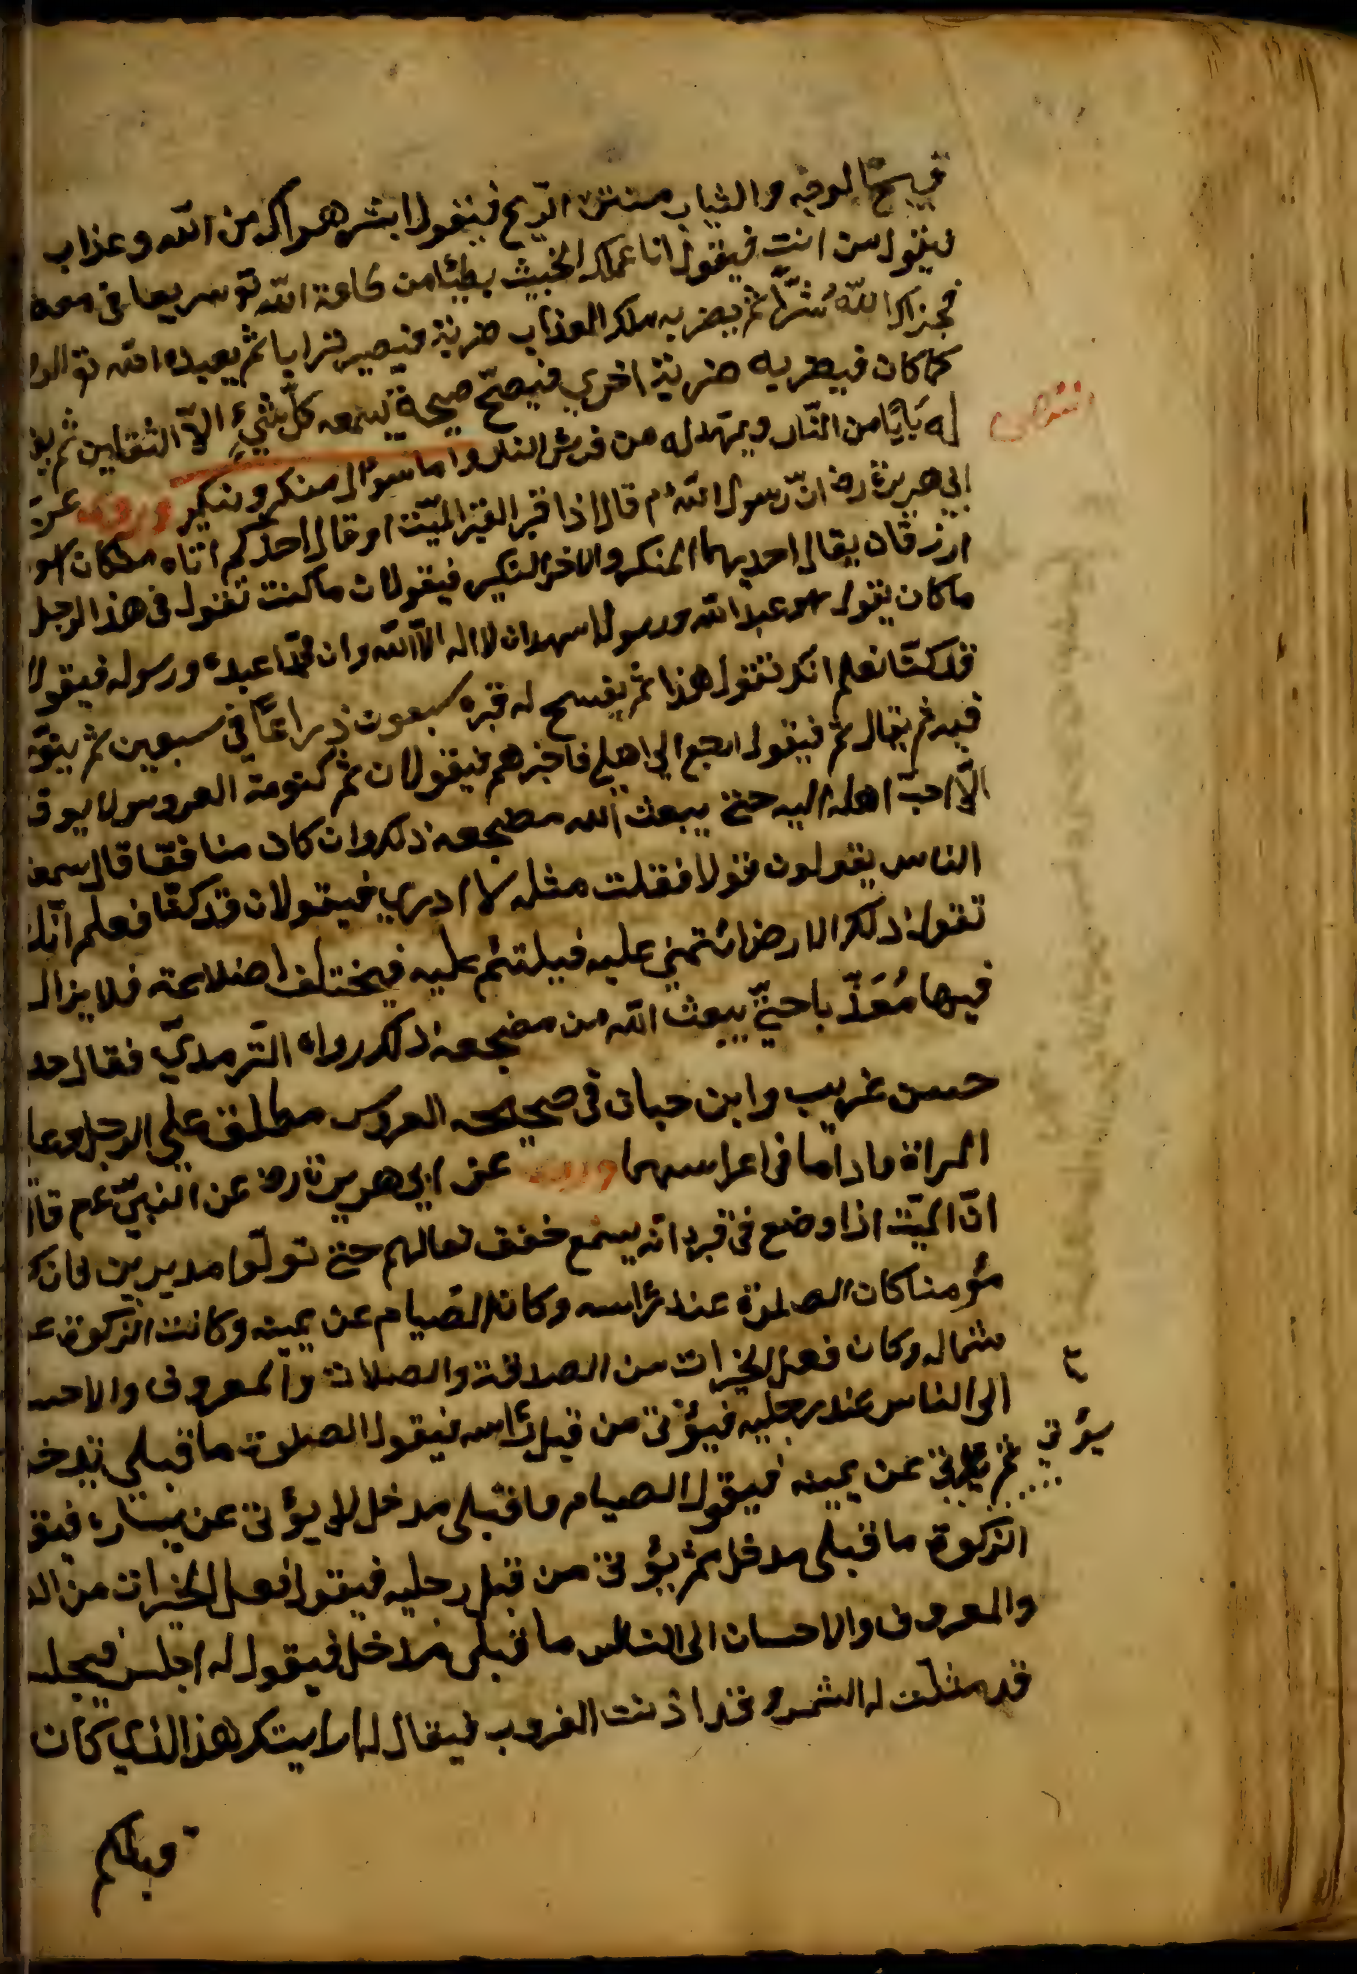 قبيح الوجه والثياب منتن الريح فيقول ابشر هوانك من الله وعذاب
فيقول من انت فيقول انا عملك الخبيث بطيئا من طاعة الله تع سريعا في معصية
فجزاك الله شرّا ثم يضربه ملك العذاب ضربة فيصير ترابا ثم يعيده الله تع
كما كان فيضربه ضربة اخري فيصيح صيحة يسمعه كلّ شيءٍ الّا الثقلين ثم
له بَابًا من النّار ويمهد له من فرش النار واما سؤال منكر ونكير وروي عن
ابي هريرة رض انّ رسول الله م قال اذا قبر القبر الميّت او قال احدكم اتاه ملكان
ازرقان يقال احديهما المنكر والاخر النكير فيقولان ما كنت تقول في هذا الرجل
ما كان يقول هو عبد الله ورسوله اشهد ان لا اله الّا الله وان محمّدا عبده ورسوله فيقولا
قد كنّا نعلم انك تقول هذا ثم يفسح له قبره سبعون ذراعًا في سبعين ثم ينوّر
فيه ثم يقال نم فيقول ارجع الي اهلي فاخبرهم فيقولان نم كنومة العروس لا يوق
الّا احبّ اهله اليه حتي يبعث الله مضجعه ذلك وان كان منافقا قال سمع
الناس يقولون قولا فقلت مثله لا ادري فيقولان قد كنّا نعلم انّك
تقول ذلك الارض ائتمي عليه فيلتئم عليه فيختلف اضلاعه فلا يزال
فيها مُعَذّبا حتيّ يبعث الله من مضجعه ذلك رواه الترمديّ فقال حد
حسن غريب وابن حبان في صحيحه العروس مطلق علي الرجل وعلي
المراة ما داما في اعراسهما وروي عن ابي هريرة رض عن النبيّ عم قال
انّ الميّت اذا وضع في قبره انّه يسمع خفق نعالهم حتي تولّوا مدبرين فان
مؤمنا كان الصلوة عند رأسه وكان الصيام عن يمينه وكانت الزكوة ع
شماله وكان فعل الخيرات من الصدقة والصلات والمعروف والاحس
الى الناس عند رجليه فيؤتى من قبل رأسه فيقول الصلوة ما قبلي
ثم يؤتى عن يمينه فيقول الصيام ما قبلي مدخل ثم يؤتى عن يساره فيقو
الزكوة ما قبلي مدخل ثم يؤتى من قبل رجليه فيقول فعل الخيرات من
والمعروف والاحسان الى الناس ما قبلي مدخل فيقول له اجلس فيجلس
قد مثلت له الشمس وقد اذنت الغروب فيقال له ارايتك هذا الذي كان
يؤتى
قبلكم